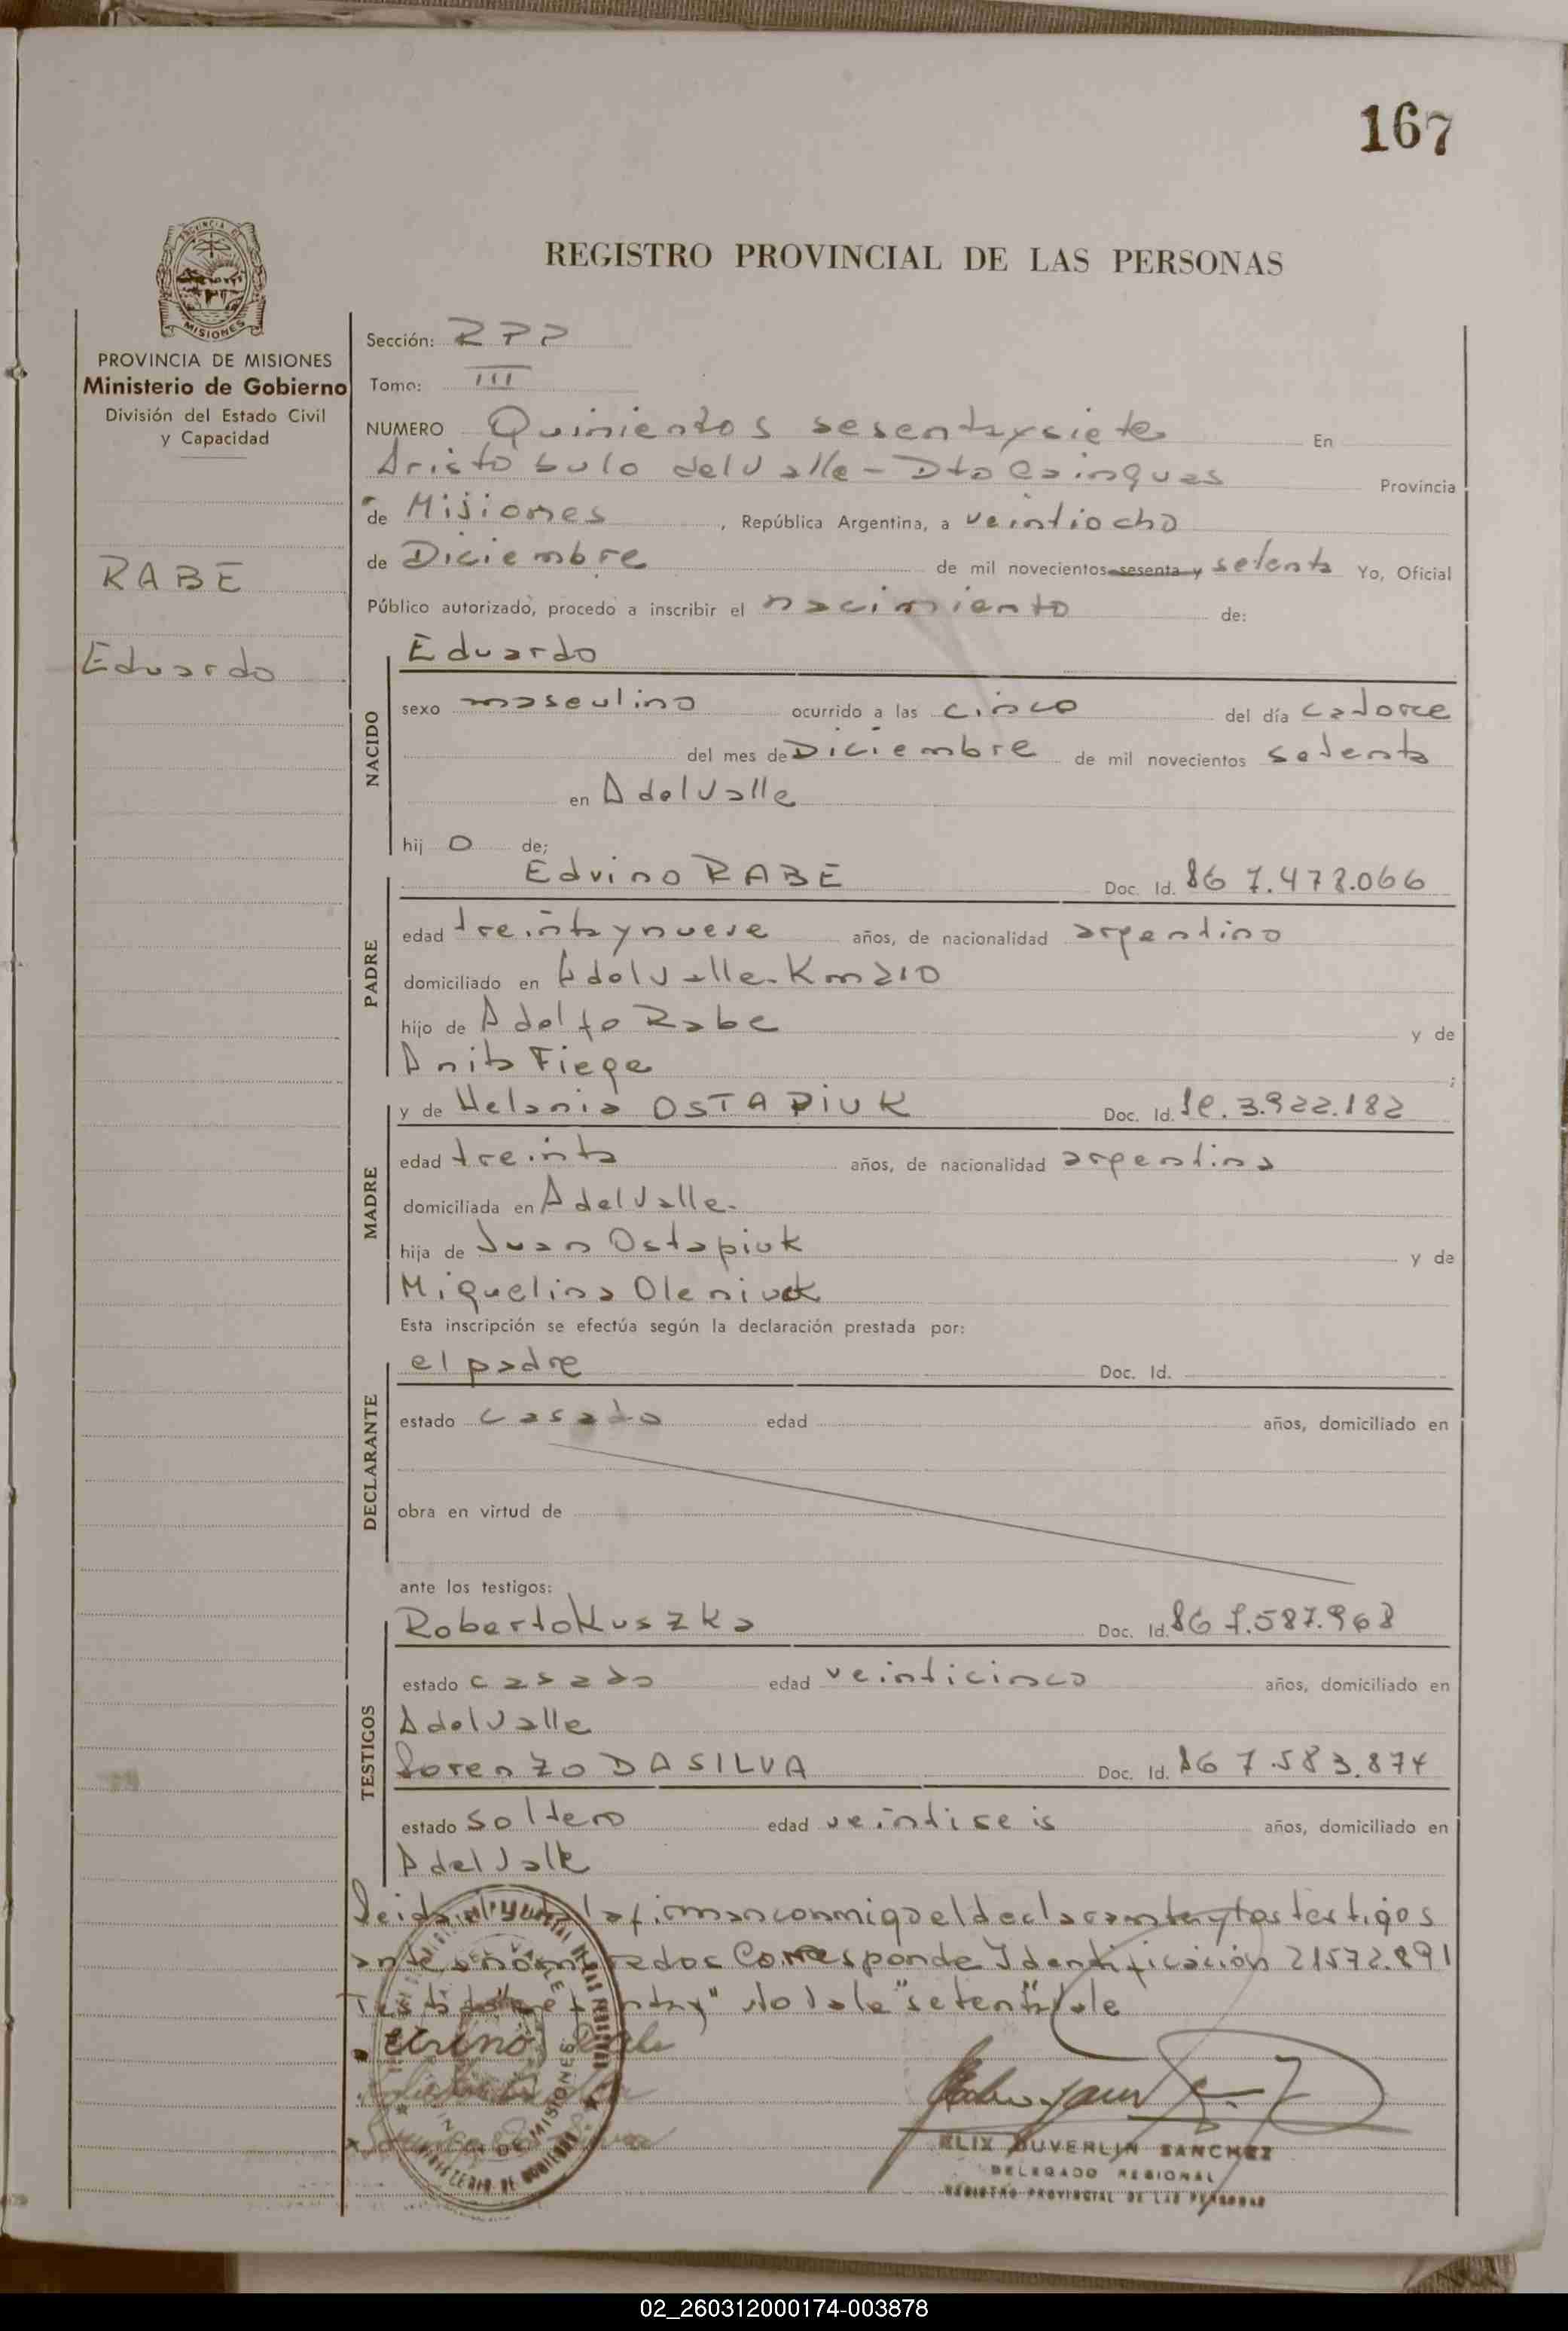 167
REGISTRO PROVINCIAL DE LAS PERSONAS
PROVINCIA DE MISIONES
Ministerio de Gobierno
División del Estado Civil
y Capacidad
RABE
Eduardo
Sección: RPP
Tomo: III
NUMERO Quinientos sesentaysiete En
Aristobulo del Valle - Dto Cainguas Provincia
de Misiones, República Argentina, a veintiocho
de Diciembre de mil novecientos sesenta y setenta Yo, Oficial
Público autorizado, procedo a inscribir el nacimiento de:
NACIDO
Eduardo
sexo masculino ocurrido a las cinco del día catorce
del mes de Diciembre de mil novecientos setenta
en A del Valle
hij o de;
PADRE
Edvino RABE Doc. Id. 7.473.066
edad treintaynueve años, de nacionalidad argentino
domiciliado en A del Valle - Km 210
hijo de Adolfo Rabe y de
Anita Fiege ;
MADRE
y de Helania OSTAPIUK Doc. Id. 3.922.182
edad treinta años, de nacionalidad argentina
domiciliada en A del Valle.
hija de Juan Ostapiuk y de
Miguelina Oleniuk
Esta inscripción se efectúa según la declaración prestada por:
DECLARANTE
el padre Doc. Id.
estado casado edad años, domiciliado en
obra en virtud de
ante los testigos:
TESTIGOS
Roberto Kuszka Doc. Id. 7.587.968
estado casado edad veinticinco años, domiciliado en
A del Valle
Lorenzo DASILVA Doc. Id. 7.583.874
estado soltero edad veintiseis años, domiciliado en
A del Valle
Leida el acta la firman conmigo el declarante y los testigos
antes nombrados Corresponde Identificación 21572.891
No vale "setenta" vale
FELIX DUVERLIN SANCHEZ
DELEGADO REGIONAL
REGISTRO PROVINCIAL DE LAS PERSONAS
02_260312000174-003878